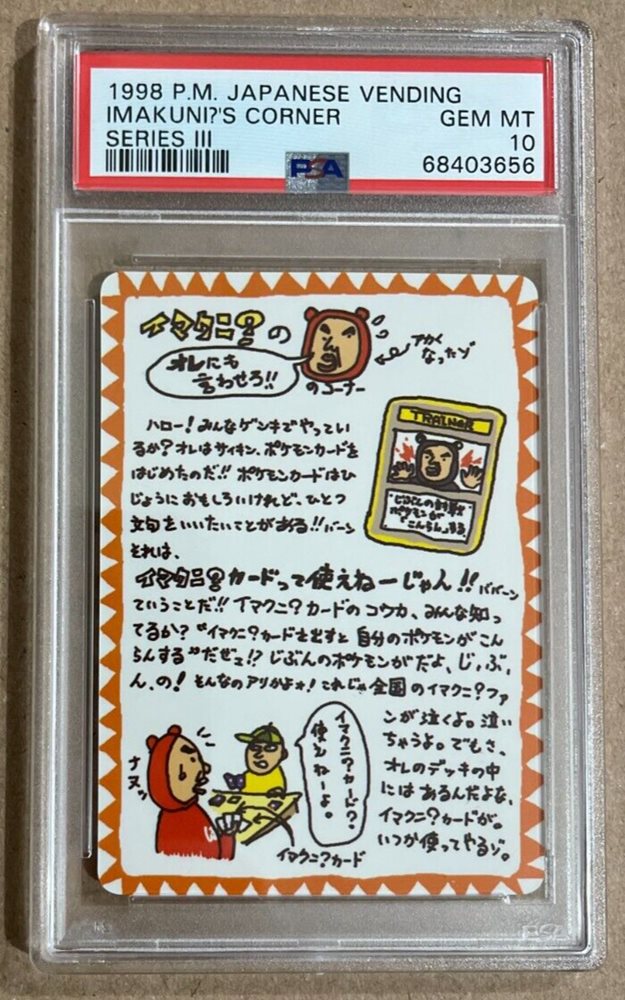 1998 P.M. JAPANESE VENDING
IMAKUNI?'S CORNER GEM MT
SERIES III 10
68403656
PSA
イマクニ?の
オレにも
言わせろ!!
のコーナー
アカく
なったゾ
ハロー!みんなゲンキでやってい
るか?オレはサイキン、ポケモンカードを
はじめたのだ!!ポケモンカードはひ
じょうにおもしろいけれど、ひとつ
文句をいいたいことがある!!バーン
それは、
TRAINER
じぶんの
ポケモンが
"こんらん"する
イマクニ?カードって使えねーじゃん!!ババーン
ていうことだ!!イマクニ?カードのコウカ、みんな知っ
てるか?"イマクニ?カードを出すと自分のポケモンがこん
らんする"だぜェ!?じぶんのポケモンがだよ、じ、ぶ、
ん、の!そんなのアリかよォ!これじゃ全国のイマクニ?ファ
ンが泣くよ。泣い
ちゃうよ。でもさ、
オレのデッキの中
にはあるんだよな、
イマクニ?カードが。
いつか使ってやるゾ。
ナヌッ
イマクニ?カード?
使えねーよ。
イマクニ?カード